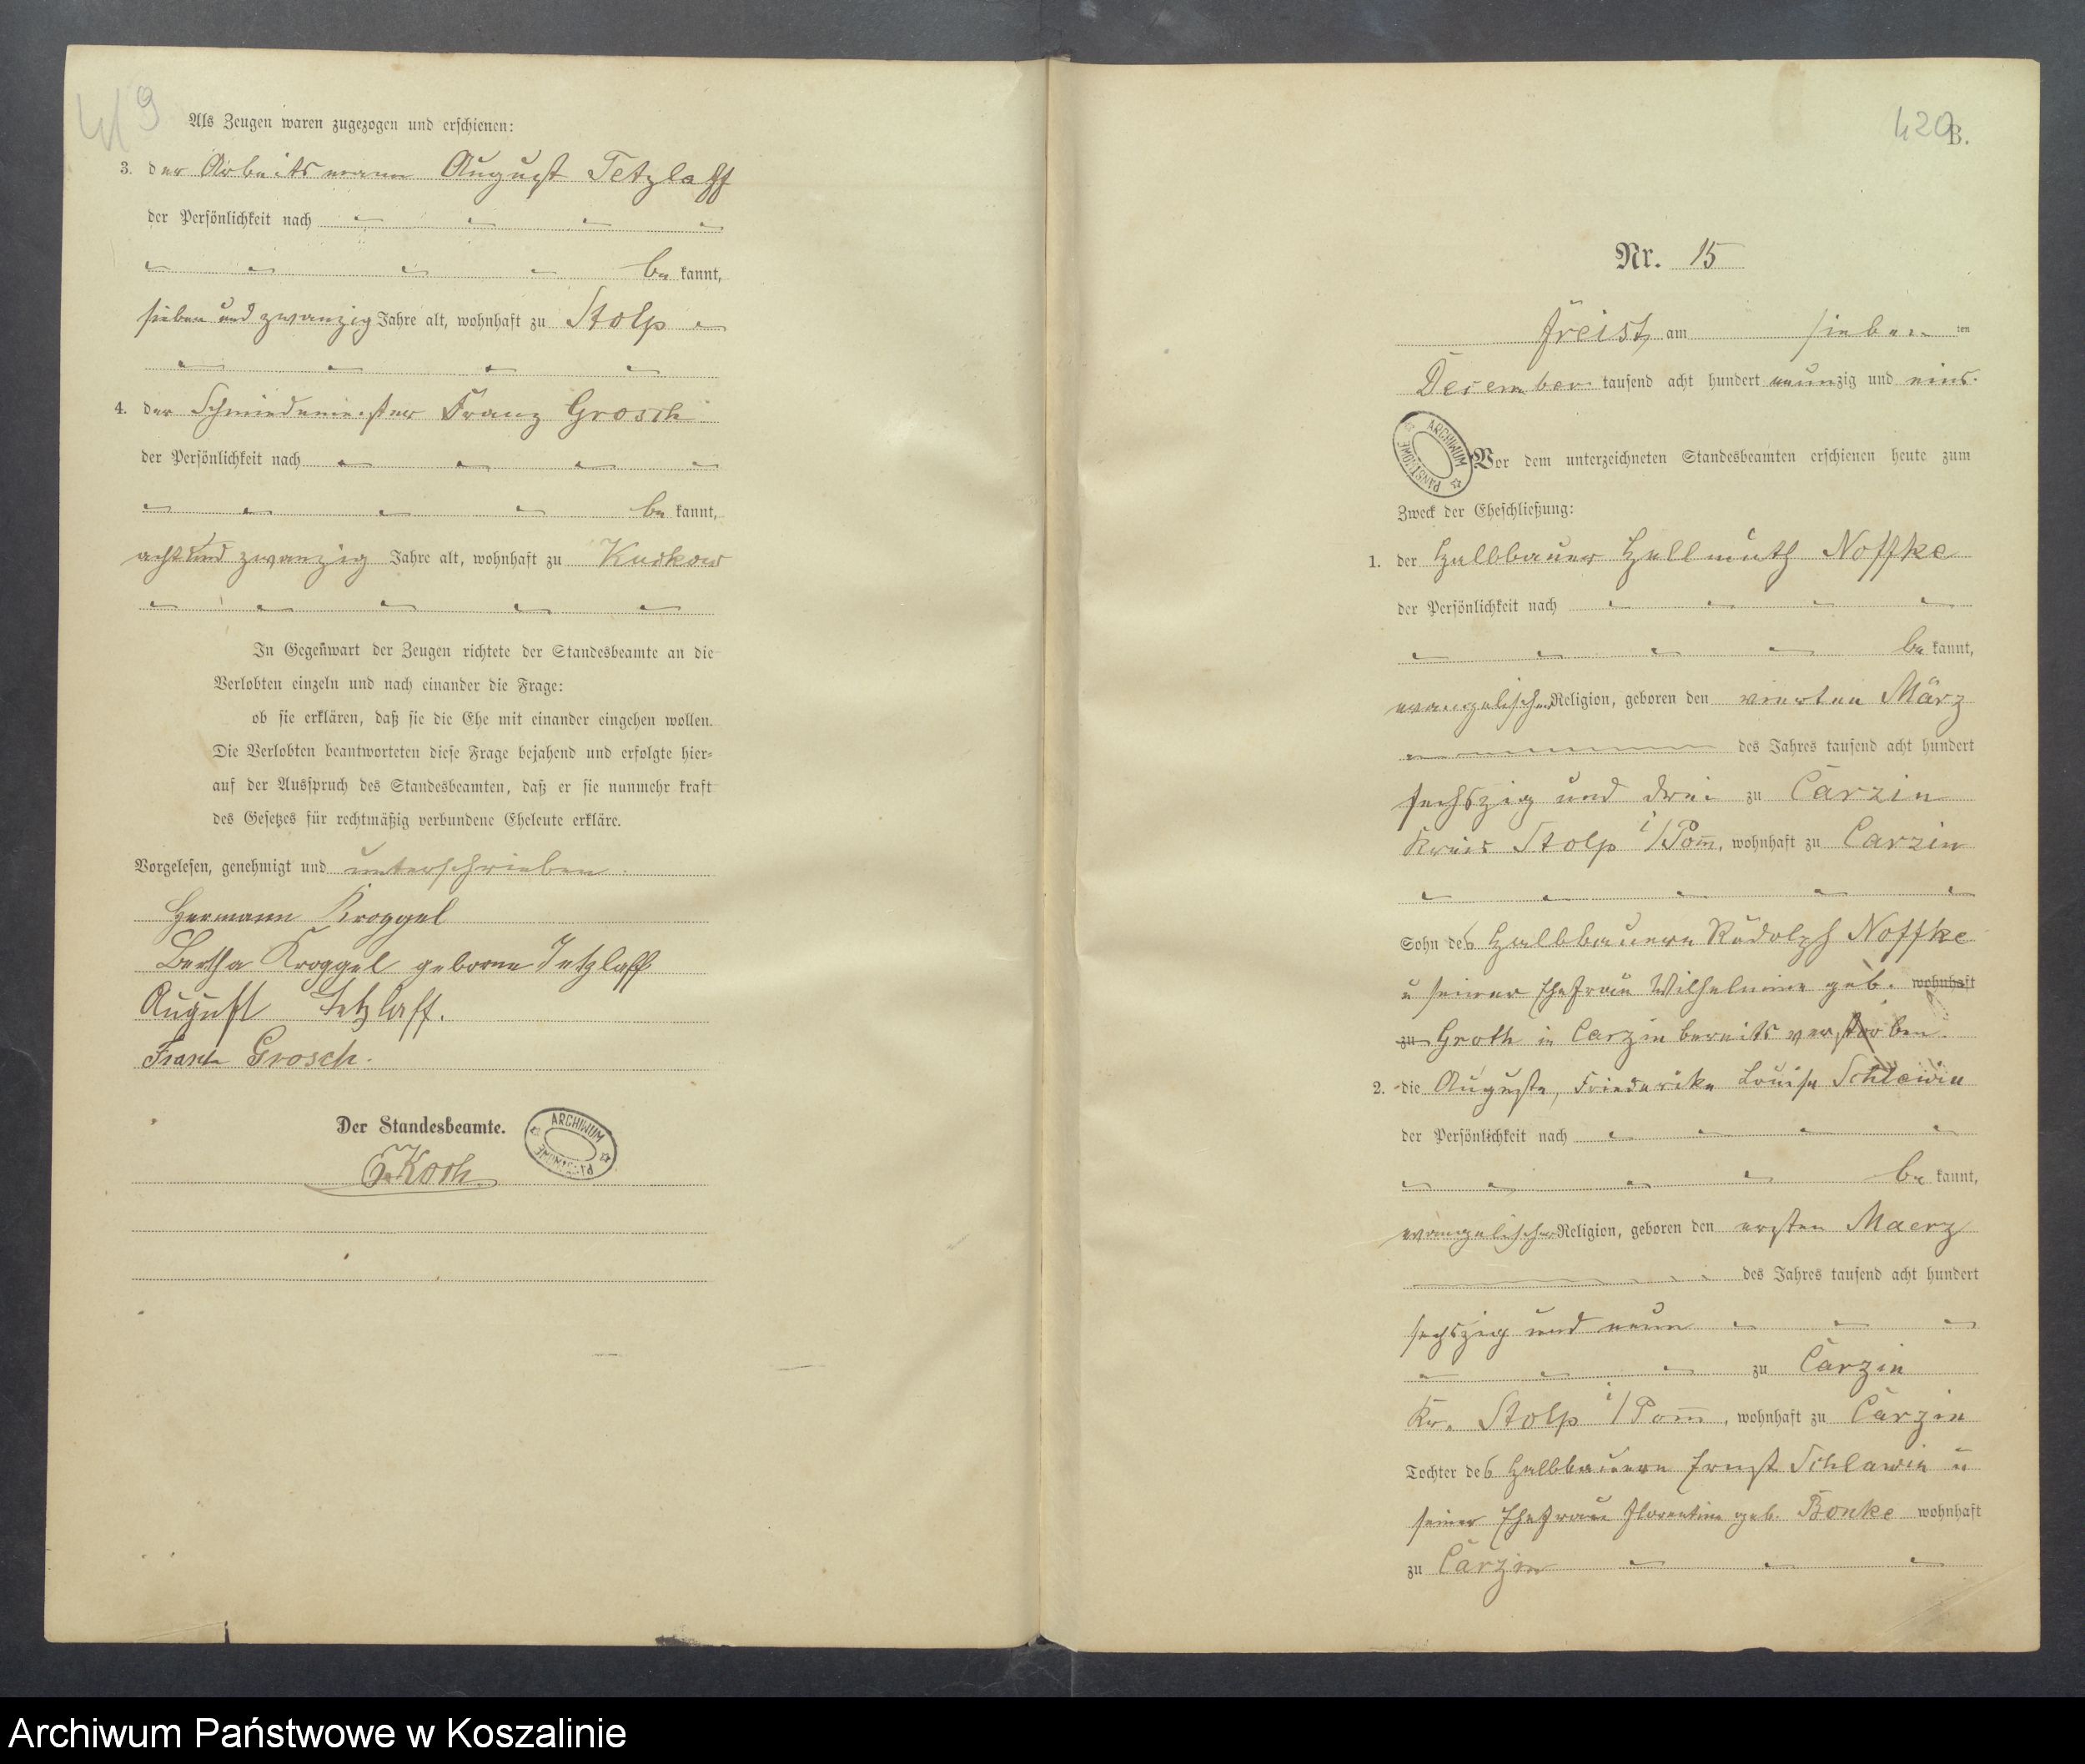 419
Als Zeugen waren zugezogen und erschienen:
3. der Arbeitsmann August Tetzlaff
der Persönlichkeit nach
be kannt,
sieben und zwanzig Jahre alt, wohnhaft zu Stolp
4. der Schmiedemeister Franz Grosch
der Persönlichkeit nach
be kannt,
acht und zwanzig Jahre alt, wohnhaft zu Kuskow
In Gegenwart der Zeugen richtete der Standesbeamte an die
Verlobten einzeln und nach einander die Frage:
ob sie erklären, daß sie die Ehe mit einander eingehen wollen.
Die Verlobten beantworteten diese Frage bejahend und erfolgte hier-
auf der Ausspruch des Standesbeamten, daß er sie nunmehr kraft
des Gesetzes für rechtmäßig verbundene Eheleute erkläre.
Vorgelesen, genehmigt und unterschrieben.
Hermann Kroggel
Bertha Kroggel geborne Tetzlaff
August Tetzlaff.
Franz Grosch.
Der Standesbeamte.
ARCHIWUM PAŃSTWOWE
Koch
420
B.
Nr. 15
Freist, am sieben ten
December tausend acht hundert neunzig und eins.
ARCHIWUM PAŃSTWOWE
Vor dem unterzeichneten Standesbeamten erschienen heute zum
Zweck der Eheschließung:
1. der Halbbauer Hellmuth Noffke
der Persönlichkeit nach
be kannt,
evangelischer Religion, geboren den vierten März
des Jahres tausend acht hundert
sechszig und drei zu Carzin
Kreis Stolp i/Pom, wohnhaft zu Carzin
Sohn des Halbbauern Rudolph Noffke
u seiner Ehefrau Wilhelmine geb. wohnhaft
zu Groth in Carzin bereits verstorben.
2. die Auguste, Friederike Louise Schlawin
der Persönlichkeit nach
be kannt,
evangelischer Religion, geboren den ersten Maerz
des Jahres tausend acht hundert
sechszig und neun
zu Carzin
Kr. Stolp i/Pom, wohnhaft zu Carzin
Tochter des Halbbauern Ernst Schlawin u
seiner Ehefrau Florentine geb. Bonke wohnhaft
zu Carzin
Archiwum Państwowe w Koszalinie